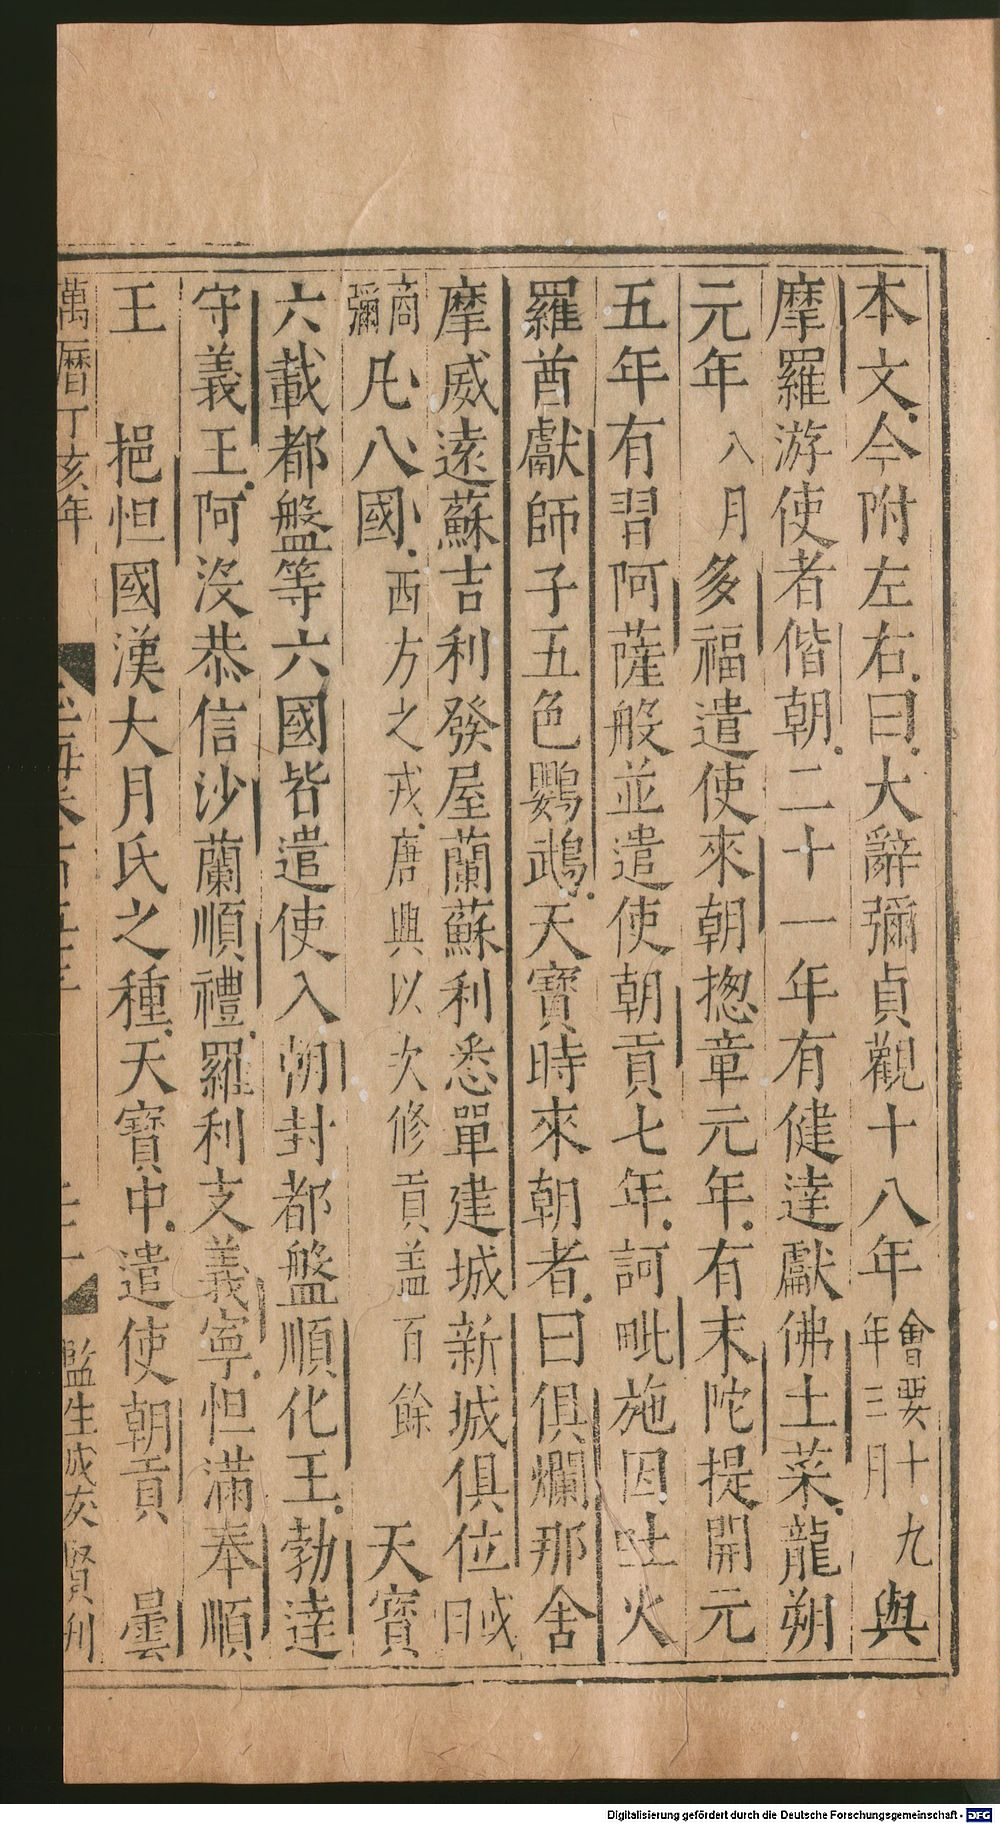 本文今附左右曰大辭彌貞觀十八年會要十九年三月與
摩羅游使者偕朝二十一年有健達獻佛土菜龍朔
元年八月多福遣使來朝揔章元年有末陀提開元
五年有習阿薩般並遣使朝貢七年訶毗施因吐火
羅酋獻師子五色鸚鵡天寶時來朝者曰俱爛那舍
摩威遠蘇吉利發屋蘭蘇利悉單建城新城俱位或曰
商彌凡八國西方之戎唐興以次修貢盖百餘 天寶
六載都盤等六國皆遣使入朝封都盤順化王勃達
守義王阿沒恭信沙蘭順禮羅利支義寧怛滿奉順
王 挹怛國漢大月氏之種天寶中遣使朝貢 曇
萬曆丁亥年 監生成友賢刊
Digitalisierung gefördert durch die Deutsche Forschungsgemeinschaft - DFG